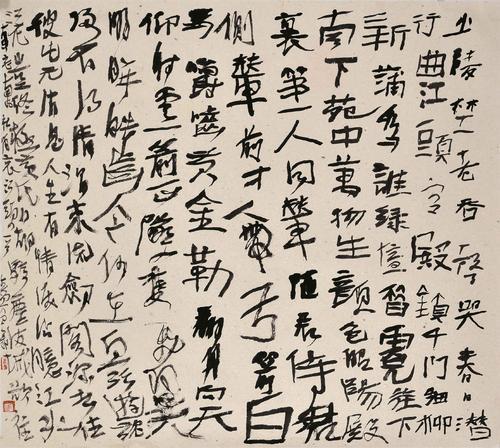 少陵埜老吞聲哭春日潛
行曲江頭宮殿鎖千門細柳
新蒲為誰綠憶昔霓旌下
南下苑中萬物生顏色昭陽殿
裏第一人同輦隨君侍君
側輦前才人帶弓箭白
馬嚼齧黃金勒翻身向天
仰射雲一箭正墜雙飛翼
明眸皓齒今何在血污遊魂
歸不得清渭東流劍閣深去住
彼此无消息人生有情淚沾臆江水
江花豈終極黃昏胡騎塵滿城欲往